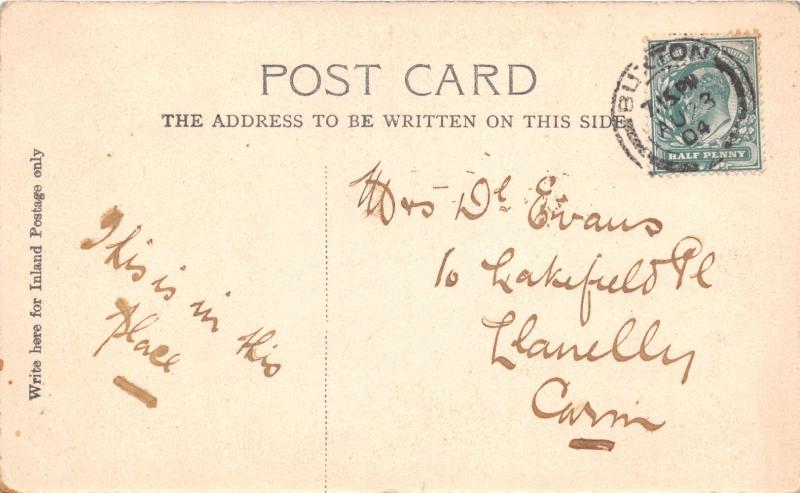 POST CARD
THE ADDRESS TO BE WRITTEN ON THIS SIDE
BUXTON
7.15 PM
AU 13
04
HALF PENNY
Write here for Inland Postage only
This is in this
place
Mrs Dl Evans
10 Lakefield Pl
Llanelly
Carm